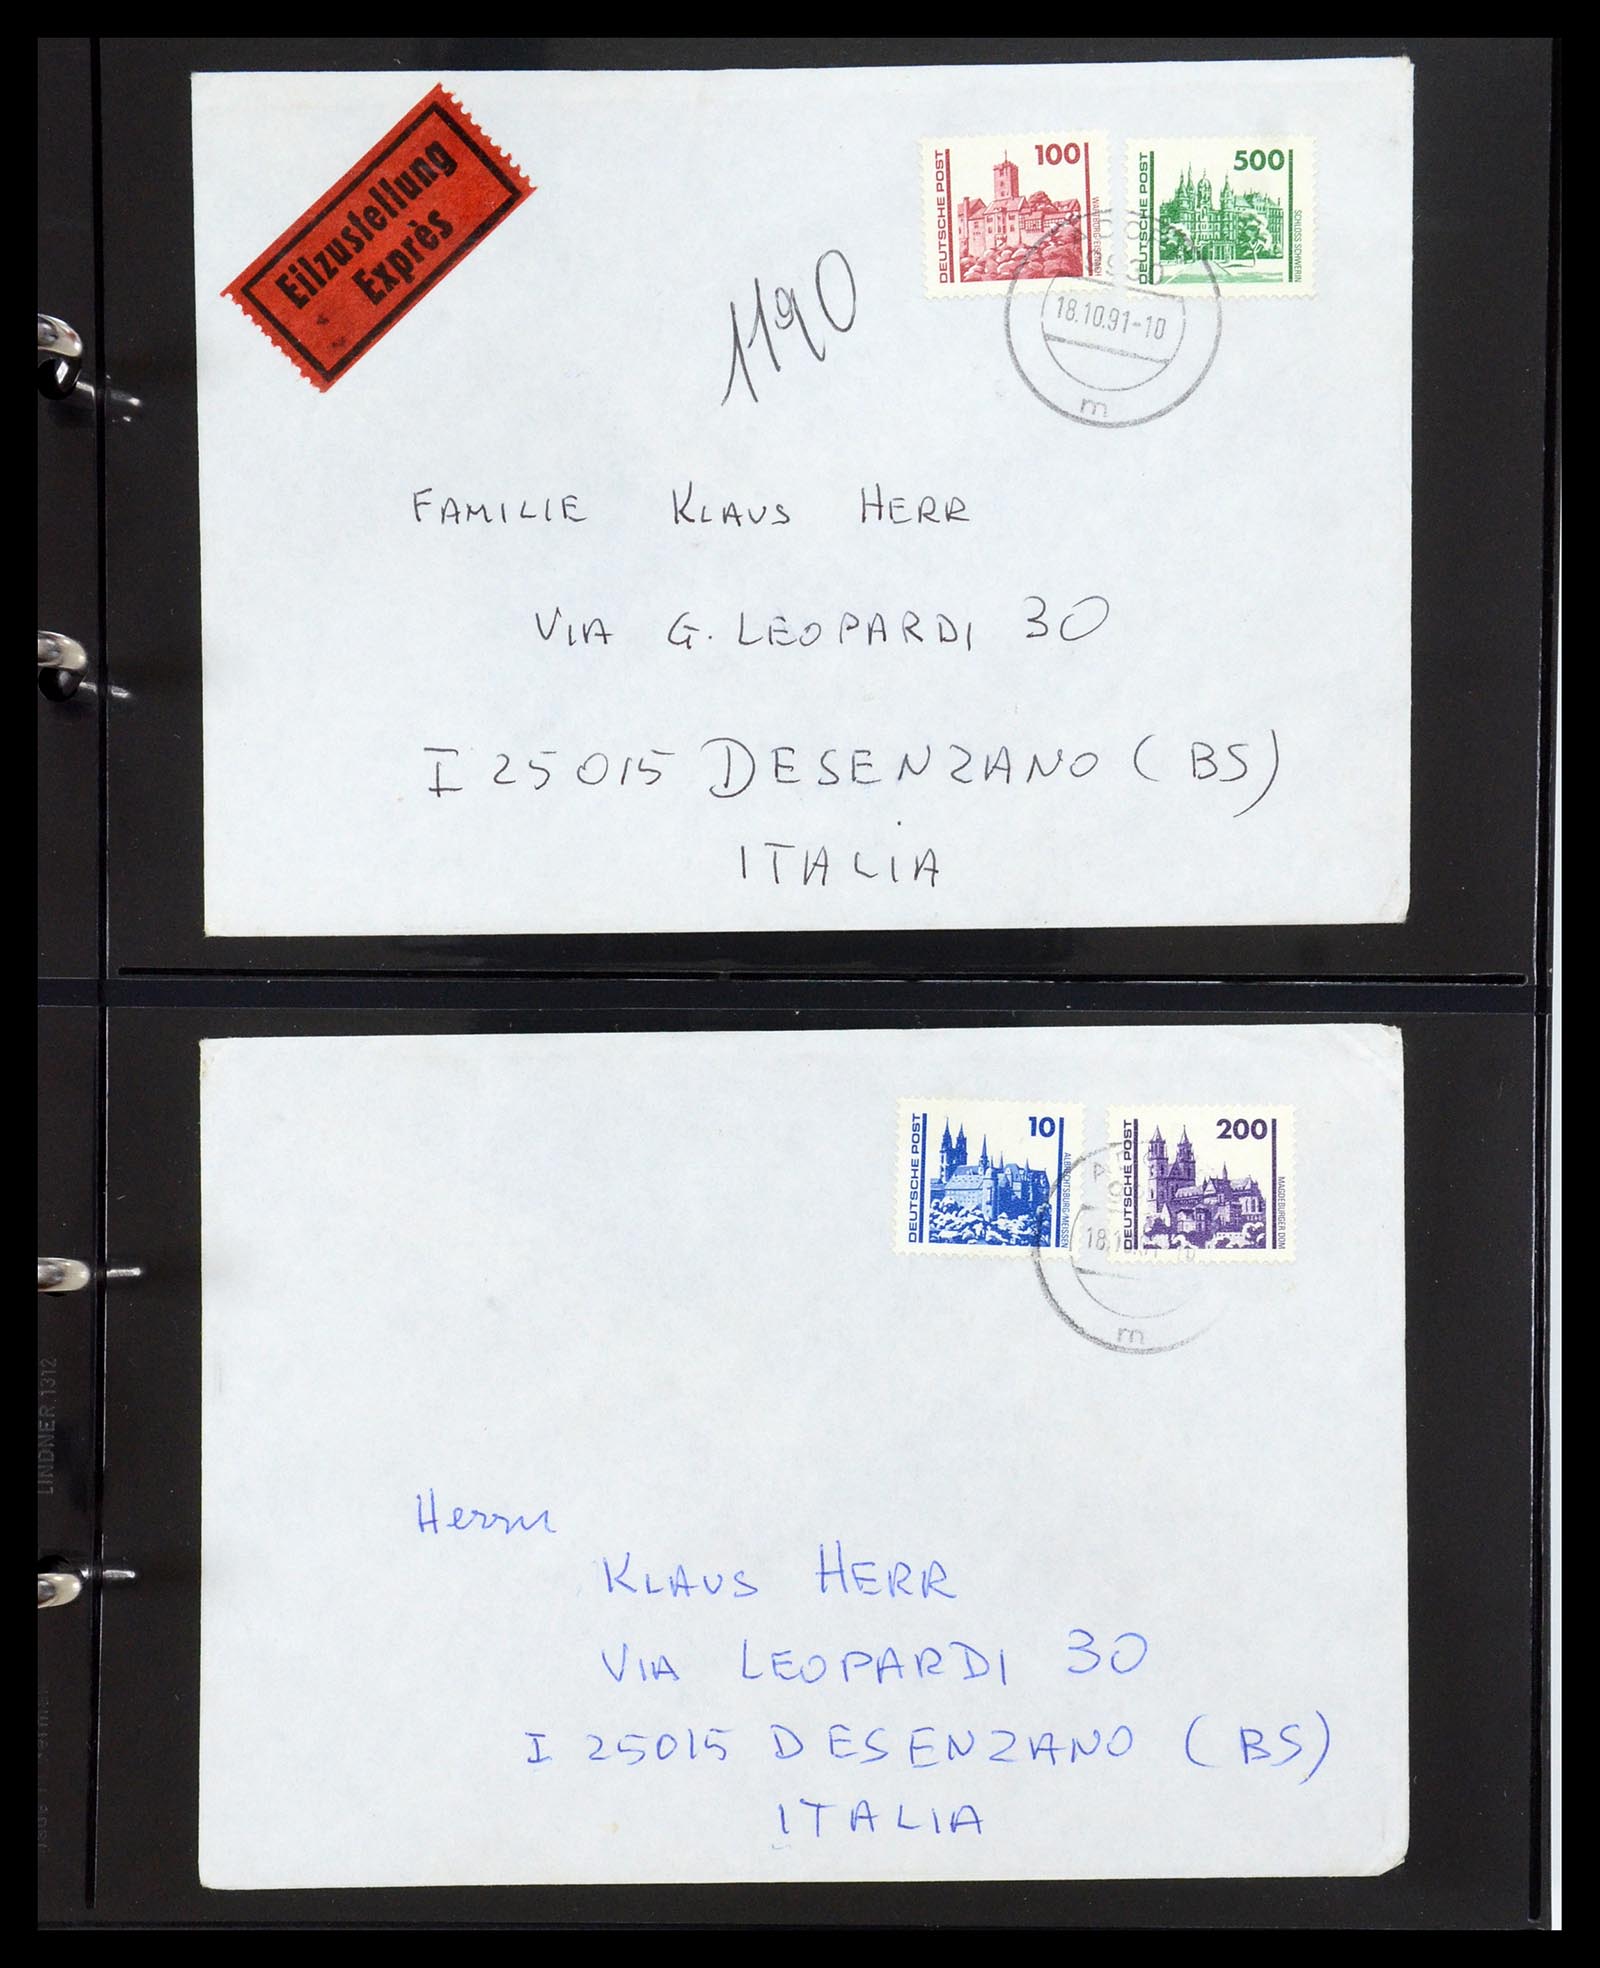 Eilzustellung
Exprès
DEUTSCHE POST
100
WARTBURG/EISENACH
DEUTSCHE POST
500
SCHLOSS SCHWERIN
18.10.91-10
m
1190
FAMILIE KLAUS HERR
VIA G. LEOPARDI 30
I 25015 DESENZANO (BS)
ITALIA
DEUTSCHE POST
10
ALBRECHTSBURG/MEISSEN
DEUTSCHE POST
200
MAGDEBURGER DOM
m
Herrn
KLAUS HERR
VIA LEOPARDI 30
I 25015 DESENZANO (BS)
ITALIA
LINDNER 1312